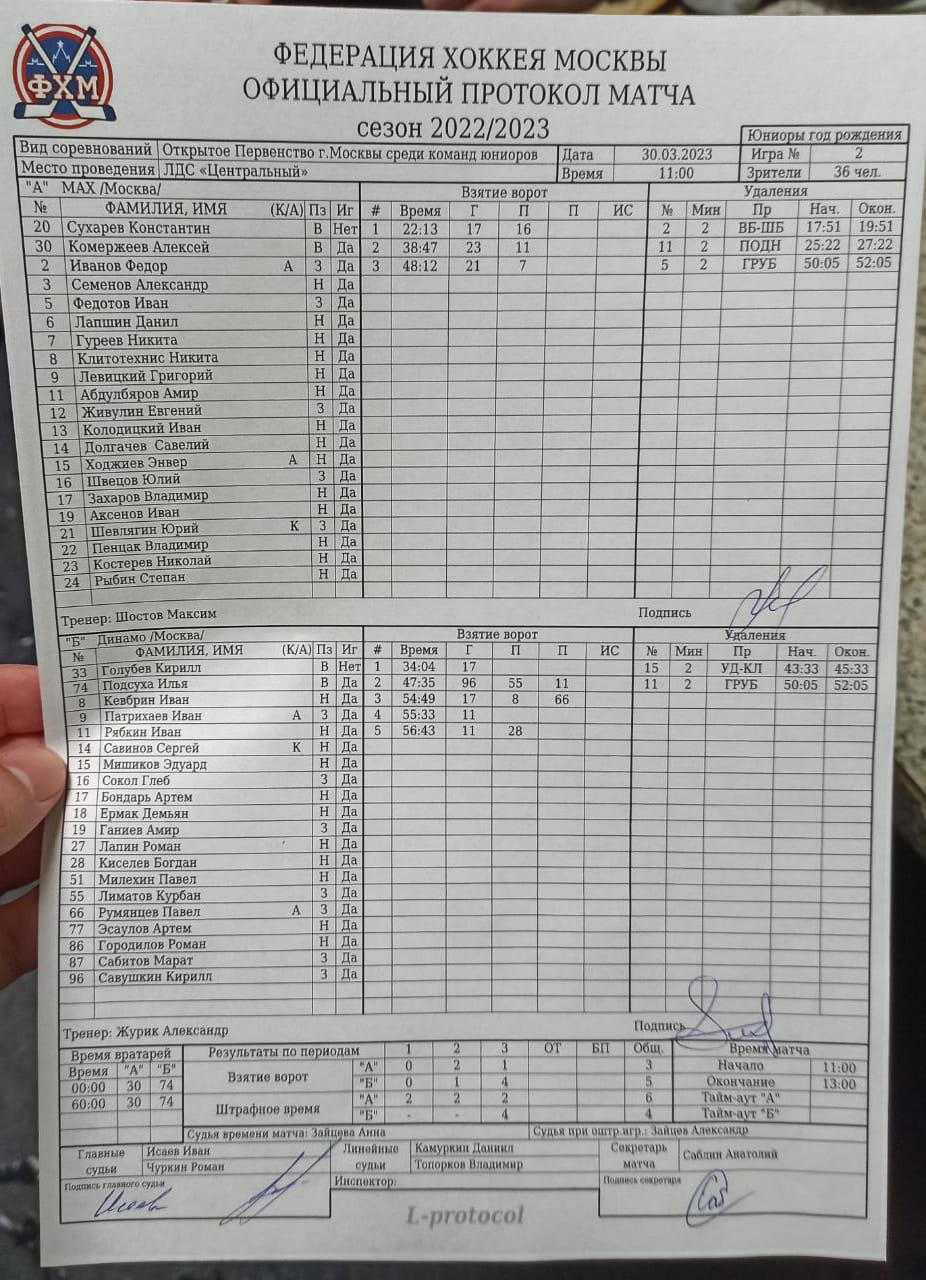 ФХМ
ФЕДЕРАЦИЯ ХОККЕЯ МОСКВЫ
ОФИЦИАЛЬНЫЙ ПРОТОКОЛ МАТЧА
сезон 2022/2023
Юниоры год рождения
Вид соревнований Открытое Первенство г.Москвы среди команд юниоров Дата 30.03.2023 Игра № 2
Место проведения ЛДС «Центральный» Время 11:00 Зрители 36 чел.
"А" МАХ /Москва/ Взятие ворот Удаления
№ ФАМИЛИЯ, ИМЯ (К/А) Пз Иг # Время Г П П ИС № Мин Пр Нач. Окон.
20 Сухарев Константин В Нет 1 22:13 17 16 2 2 ВБ-ШБ 17:51 19:51
30 Комержеев Алексей В Да 2 38:47 23 11 11 2 ПОДН 25:22 27:22
2 Иванов Федор А З Да 3 48:12 21 7 5 2 ГРУБ 50:05 52:05
3 Семенов Александр Н Да
5 Федотов Иван З Да
6 Лапшин Данил Н Да
7 Гуреев Никита Н Да
8 Клитотехнис Никита Н Да
9 Левицкий Григорий Н Да
11 Абдулбяров Амир Н Да
12 Живулин Евгений З Да
13 Колодицкий Иван Н Да
14 Долгачев Савелий Н Да
15 Ходжиев Энвер А Н Да
16 Швецов Юлий З Да
17 Захаров Владимир Н Да
19 Аксенов Иван Н Да
21 Шевлягин Юрий К З Да
22 Пенцак Владимир Н Да
23 Костерев Николай Н Да
24 Рыбин Степан Н Да
Тренер: Шостов Максим Подпись
"Б" Динамо /Москва/ Взятие ворот Удаления
№ ФАМИЛИЯ, ИМЯ (К/А) Пз Иг # Время Г П П ИС № Мин Пр Нач. Окон.
33 Голубев Кирилл В Нет 1 34:04 17 15 2 УД-КЛ 43:33 45:33
74 Подсуха Илья В Да 2 47:35 96 55 11 11 2 ГРУБ 50:05 52:05
8 Кевбрин Иван Н Да 3 54:49 17 8 66
9 Патрихаев Иван А З Да 4 55:33 11
11 Рябкин Иван Н Да 5 56:43 11 28
14 Савинов Сергей К Н Да
15 Мишиков Эдуард Н Да
16 Сокол Глеб З Да
17 Бондарь Артем Н Да
18 Ермак Демьян Н Да
19 Ганиев Амир З Да
27 Лапин Роман Н Да
28 Киселев Богдан Н Да
51 Милехин Павел Н Да
55 Лиматов Курбан З Да
66 Румянцев Павел А З Да
77 Эсаулов Артем Н Да
86 Городилов Роман Н Да
87 Сабитов Марат З Да
96 Савушкин Кирилл З Да
Тренер: Журик Александр Подпись
Время вратарей Результаты по периодам 1 2 3 ОТ БП Общ. Время матча
Время "А" "Б" Взятие ворот "А" 0 2 1 3 Начало 11:00
00:00 30 74 "Б" 0 1 4 5 Окончание 13:00
60:00 30 74 Штрафное время "А" 2 2 2 6 Тайм-аут "А"
"Б" - - 4 4 Тайм-аут "Б"
Судья времени матча: Зайцева Анна Судья при оштр.игр.: Зайцев Александр
Главные судьи Исаев Иван Линейные судьи Камуркин Даниил Секретарь матча Саблин Анатолий
Чуркин Роман Топорков Владимир
Подпись главного судьи Инспектор: Подпись секретаря
L-protocol